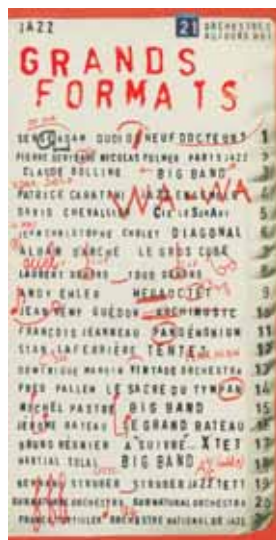 JAZZ
21 ORCHESTRES
AUJOURD'HUI
GRANDS
FORMATS
SERGE ADAM QUOI DE NEUF DOCTEUR? 1
PIERRE BERTRAND NICOLAS FOLMER PARIS JAZZ 2
CLAUDE BOLLING BIG BAND 3
PATRICE CARATINI JAZZ ENSEMBLE 4
WA-WA
DAVID CHEVALLIER 5
JEAN CHRISTOPHE CHOLET DIAGONAL 6
ALBAN DARCHE LE GROS CUBE 7
LAURENT DEHORS TOUS DEHORS 8
ANDY EMLER MEGAOCTET 9
JEAN REMY GUÉDON ARCHIMUSIC 10
FRANÇOIS JEANNEAU PANDÉMONIUM 11
STAN LAFERRIÈRE TENTET 12
DOMINIQUE MANDIN VINTAGE ORCHESTRA 13
FRED PALLEM LE SACRE DU TYMPAN 14
MICHEL PASTRE BIG BAND 15
JÉRÔME RATEAU LE GRAND RATEAU 16
BRUNO REGNIER X'TET 17
MARTIAL SOLAL BIG BAND 18
BERNARD STRUBER STRUBER JAZZTETT 19
SURNATURAL ORCHESTRA SURNATURAL ORCHESTRA 20
FRANCK TORTILLER ORCHESTRE NATIONAL DE JAZZ